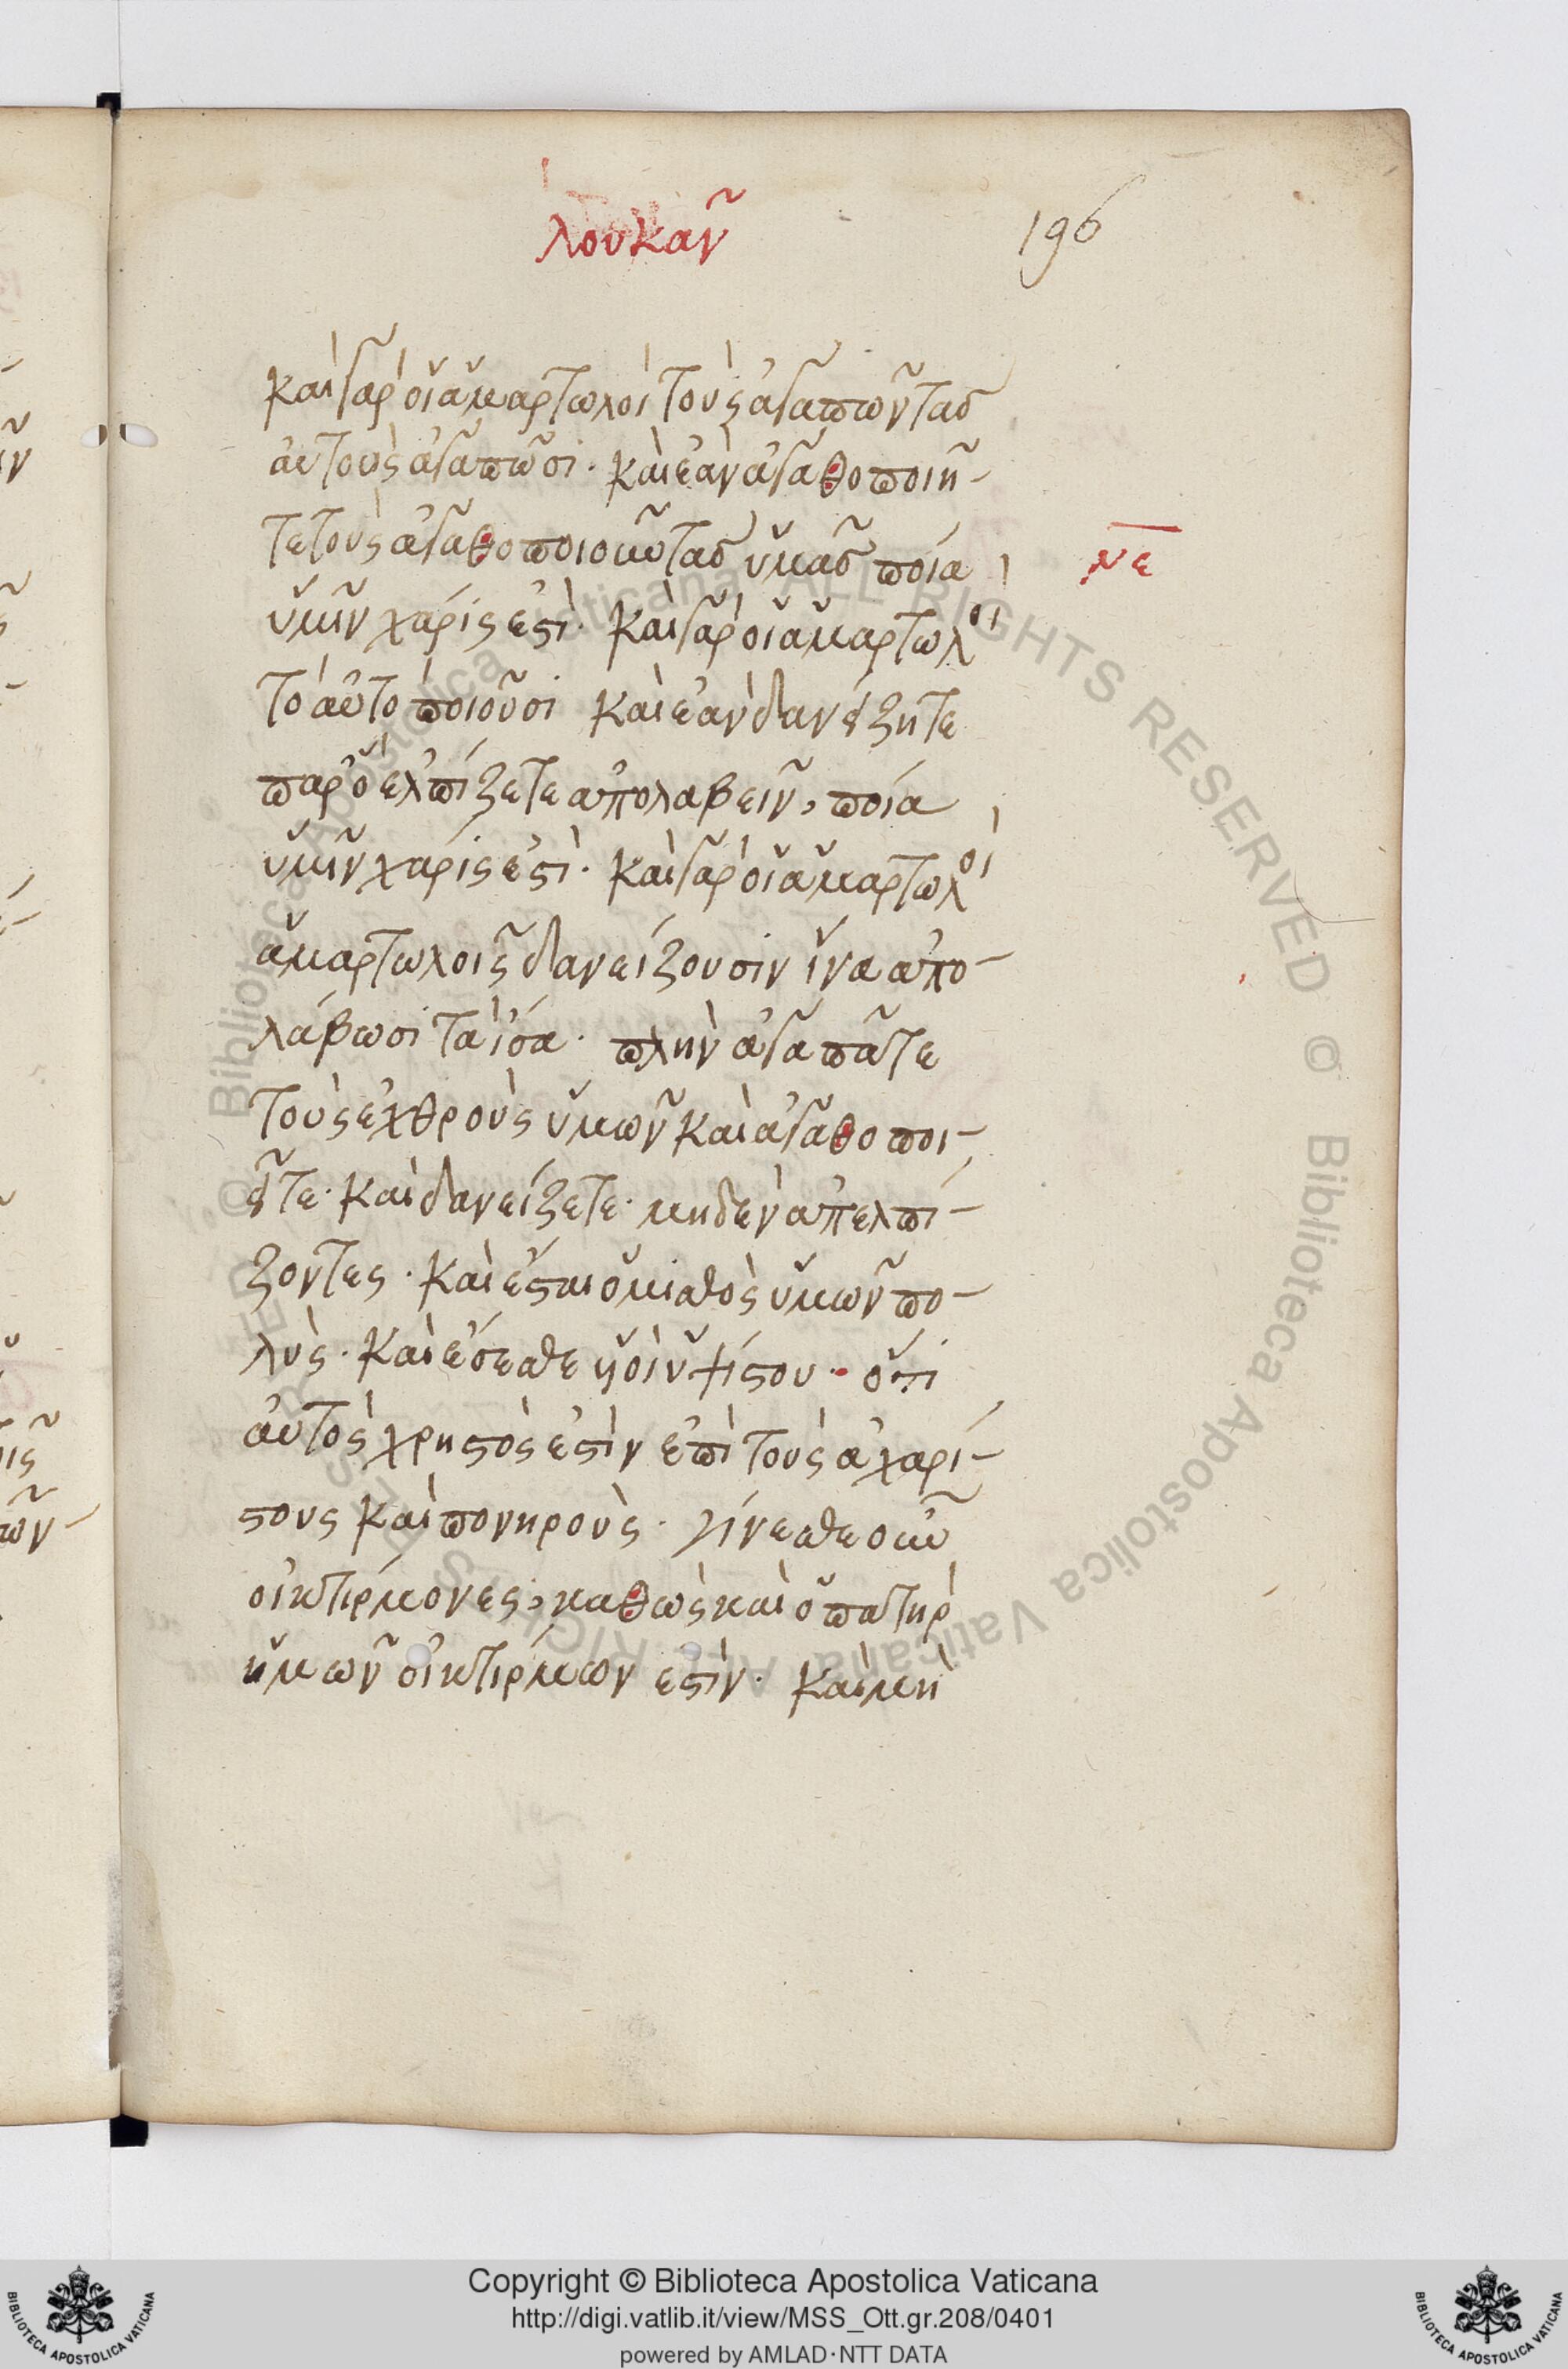 λουκᾶν
196
καὶ γὰρ οἱ ἁμαρτωλοὶ τοὺς ἀγαπῶντας
αὐτοὺς ἀγαπῶσι· καὶ ἐὰν ἀγαθοποιῆ-
τε τοὺς ἀγαθοποιοῦντας ὑμᾶς ποία
νε
ὑμῖν χάρις ἐστὶ· καὶ γὰρ οἱ ἁμαρτωλοὶ
τὸ αὐτὸ ποιοῦσι καὶ ἐὰν δανείζητε
παρ' ὧν ἐλπίζετε ἀπολαβεῖν, ποία
ὑμῖν χάρις ἐστὶ· καὶ γὰρ οἱ ἁμαρτωλοὶ
ἁμαρτωλοῖς δανείζουσιν ἵνα ἀπο-
λάβωσι τὰ ἴσα· πλὴν ἀγαπᾶτε
τοὺς ἐχθροὺς ὑμῶν καὶ ἀγαθοποι-
εῖτε· καὶ δανείζετε· μηδὲν ἀπελπί-
ζοντες· καὶ ἔσται ὁ μισθὸς ὑμῶν πο-
λὺς· καὶ ἔσεσθε υἱοὶ ὑψίστου· ὅτι
αὐτὸς χρηστὸς ἐστὶν ἐπὶ τοὺς ἀχαρί-
στους καὶ πονηροὺς· γίνεσθε οὖν
οἰκτίρμονες, καθὼς καὶ ὁ πατὴρ
ἡμῶν οἰκτίρμων ἐστὶν· καὶ μὴ
Copyright © Biblioteca Apostolica Vaticana
http://digi.vatlib.it/view/MSS_Ott.gr.208/0401
powered by AMLAD·NTT DATA
BIBLIOTECA APOSTOLICA VATICANA
BIBLIOTECA APOSTOLICA VATICANA